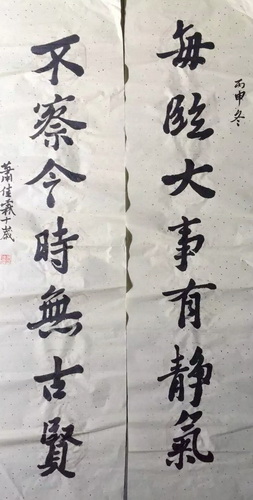 丙申冬
每臨大事有靜氣
不察今時無古賢
蕭佳霖十歲